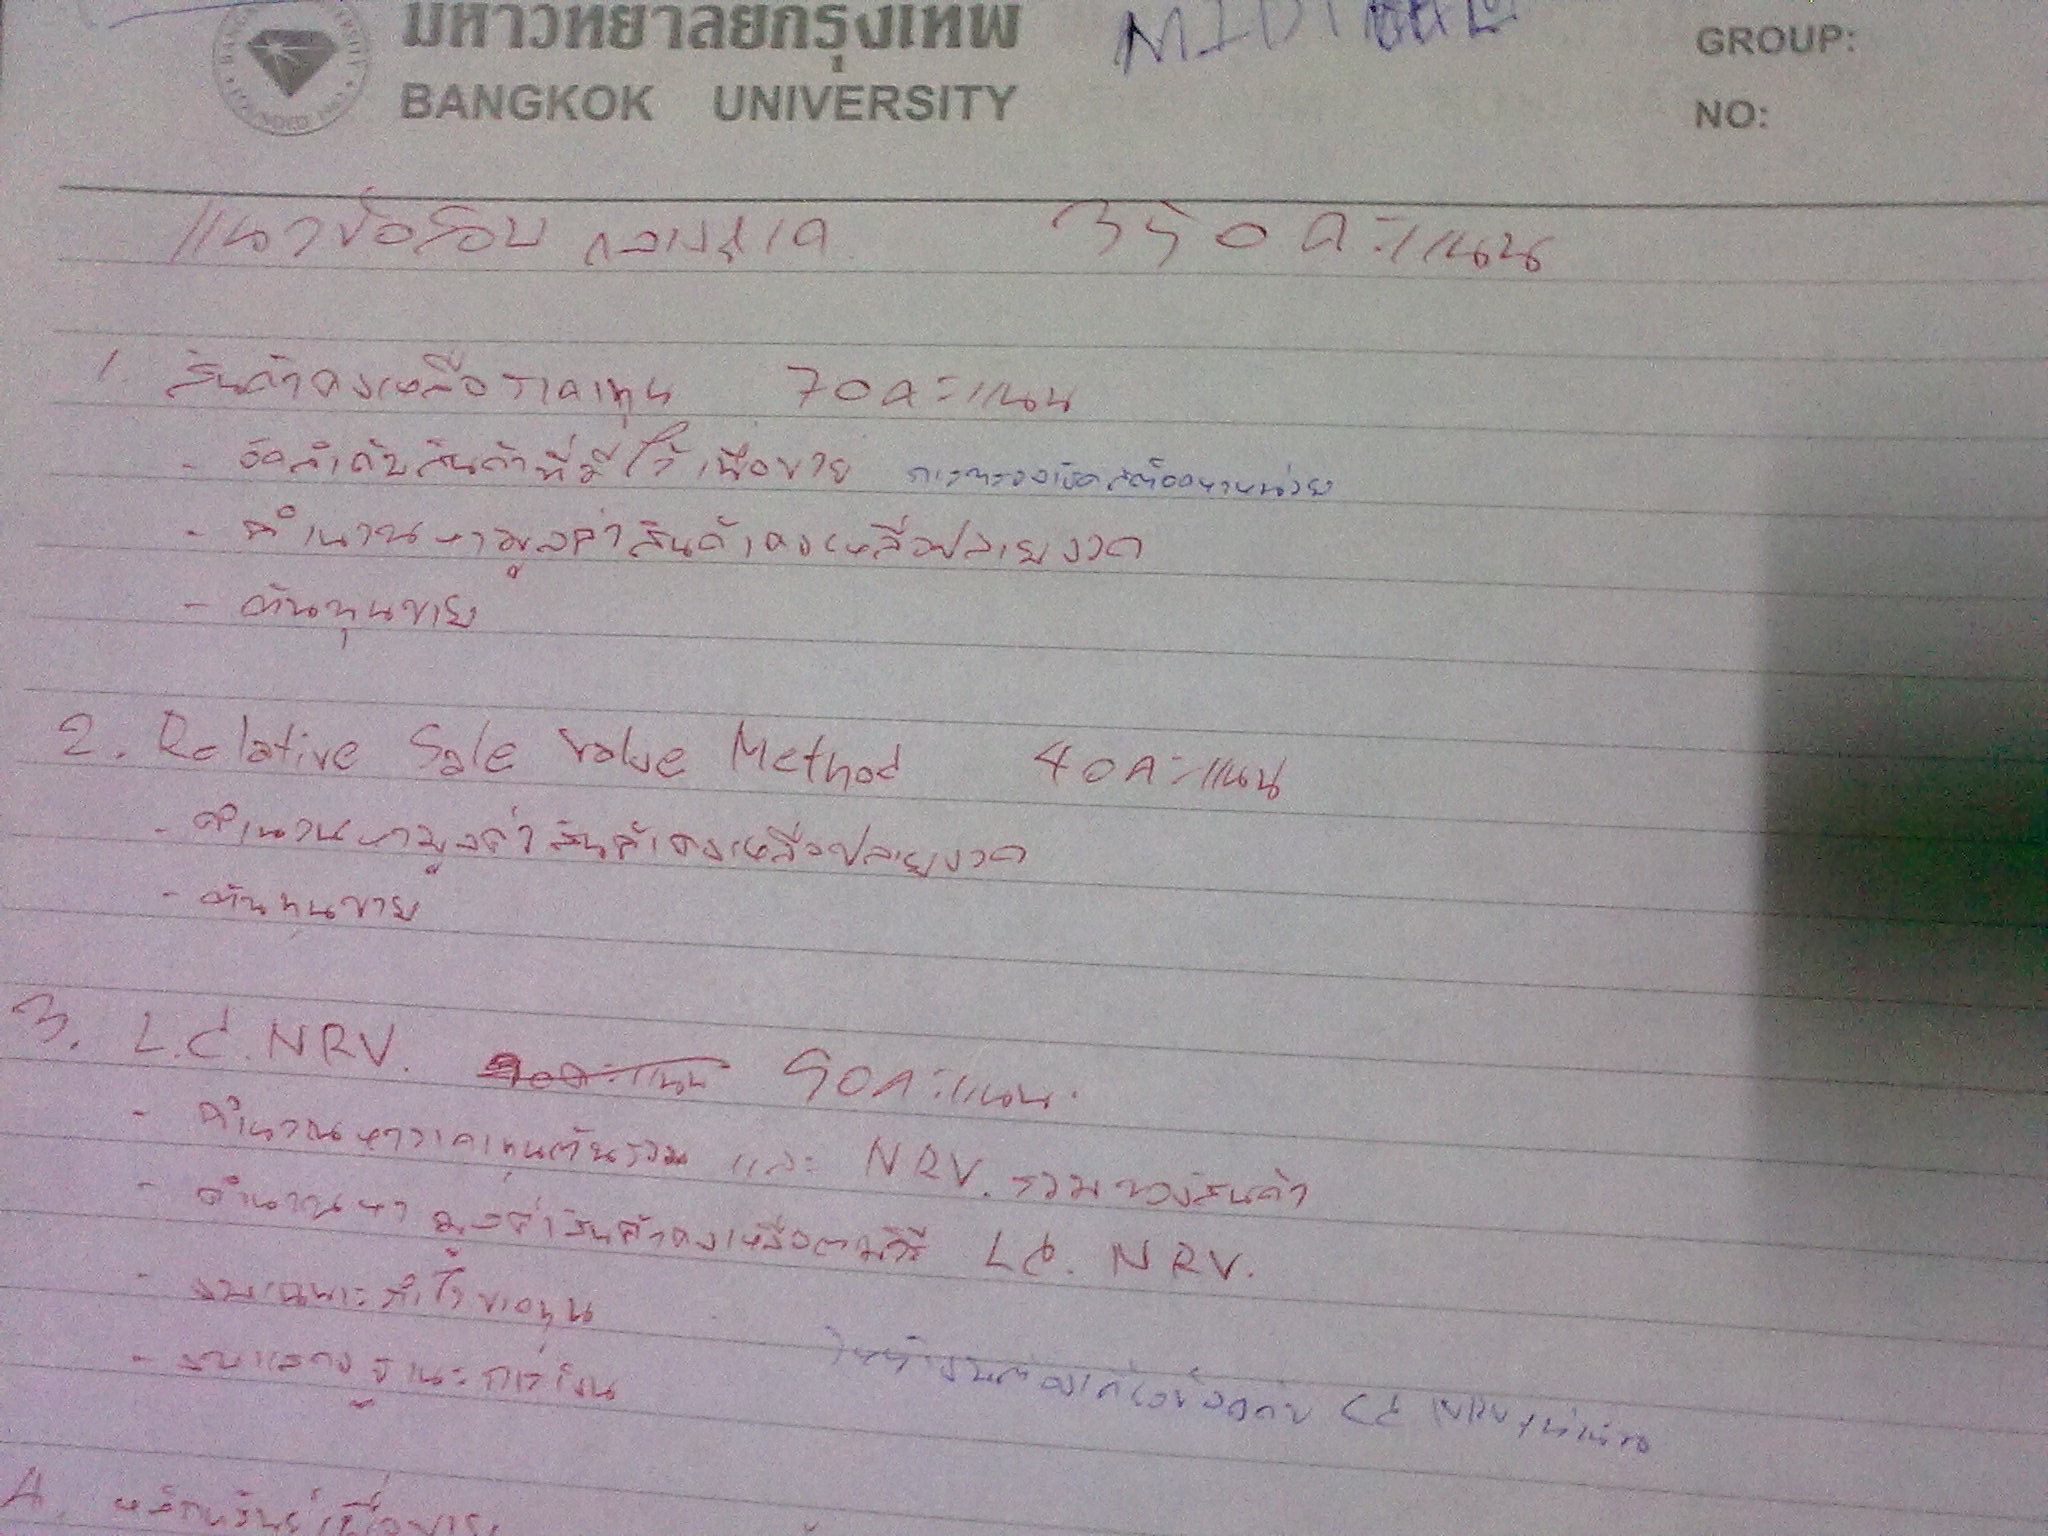 มหาวิทยาลัยกรุงเทพ
BANGKOK UNIVERSITY
GROUP:
NO:
แนวข้อสอบ กลางภาค 350 คะแนน
1. สินค้าคงเหลือราคาทุน 70 คะแนน
- จัดลำดับสินค้าที่มีไว้เพื่อขาย
- คำนวนหามูลค่าสินค้าคงเหลือปลายงวด
- ต้นทุนขาย
2. Relative Sale Value Method 40 คะแนน
- คำนวนหามูลค่าสินค้าคงเหลือปลายงวด
- ต้นทุนขาย
3. L.C.NRV. 90 คะแนน
- คำนวณหาราคาทุนต้นรวม และ NRV. รวมของสินค้า
- คำนวณหา มูลค่าสินค้าคงเหลือตามวิธี LC. NRV.
- งบเฉพาะกำไรขาดทุน
- งบแสดงฐานะการเงิน
4. หลักทรัพย์เผื่อขาย